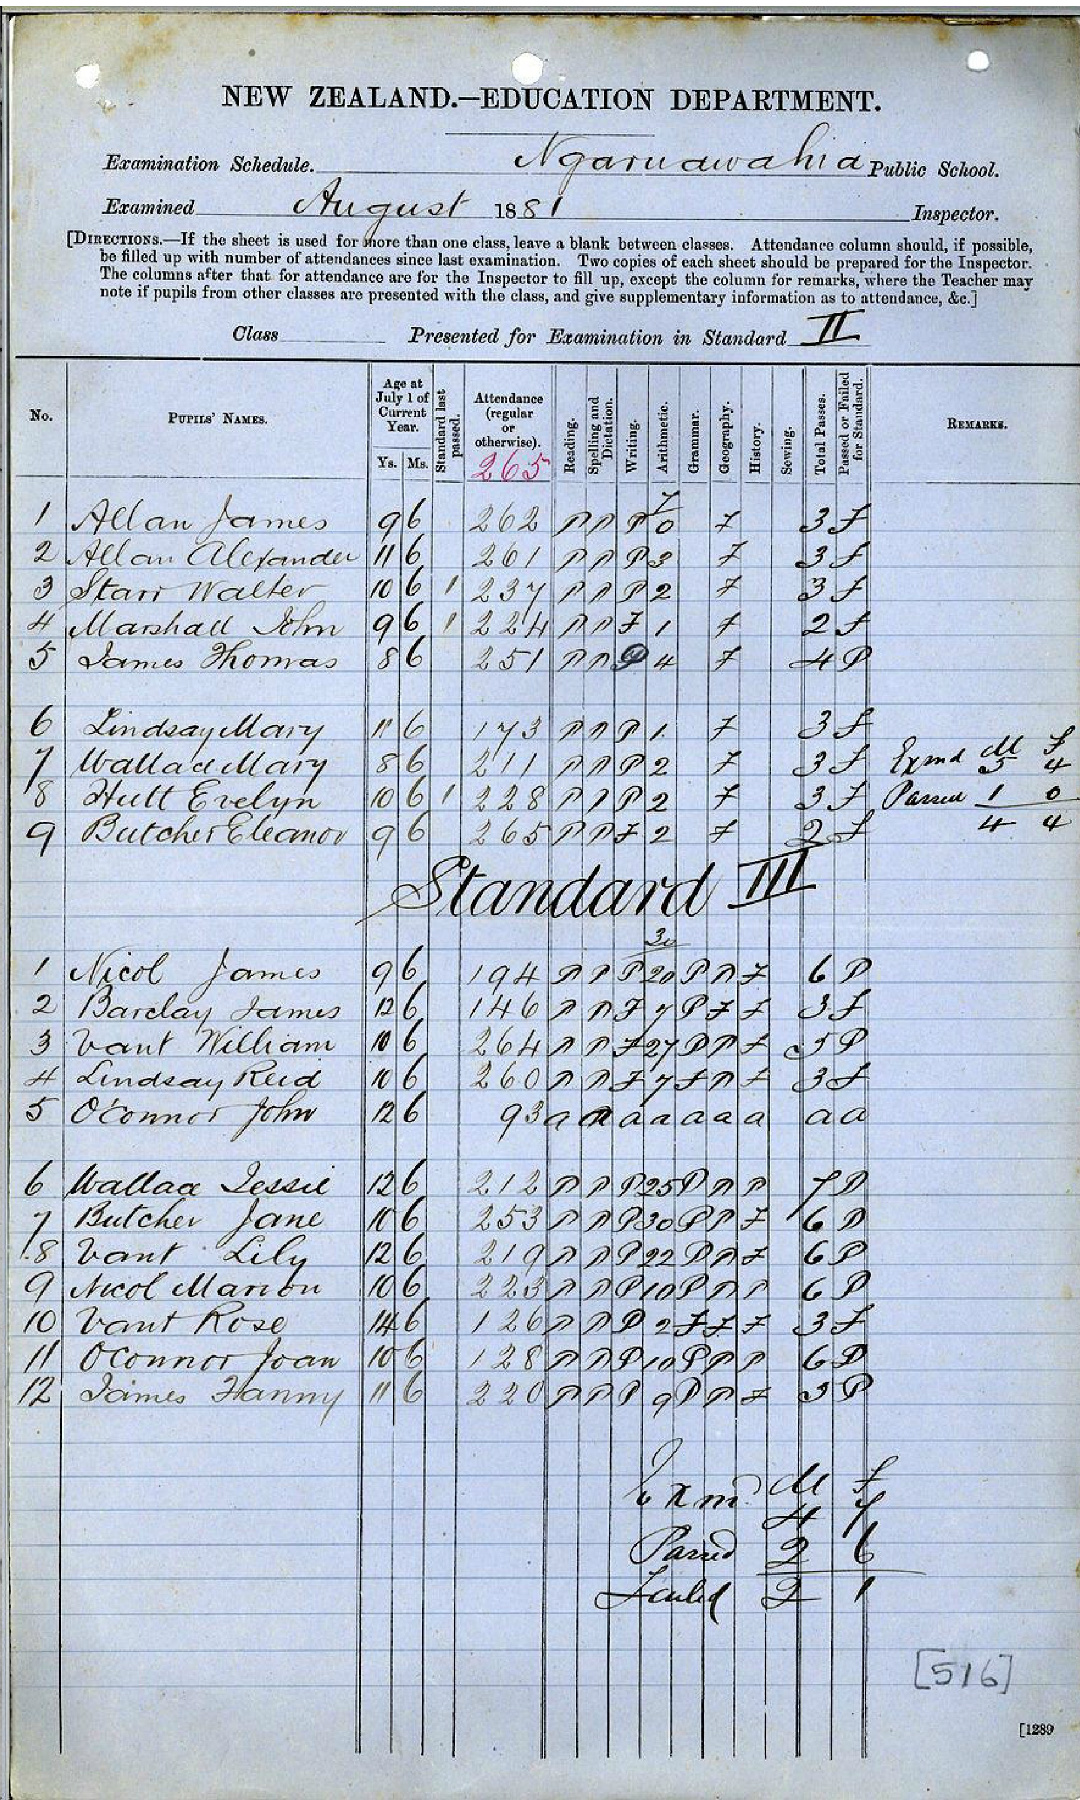 NEW ZEALAND.—EDUCATION DEPARTMENT.
Examination Schedule. Ngaruawahia Public School.
Examined August 1881 Inspector.
[DIRECTIONS.—If the sheet is used for more than one class, leave a blank between classes. Attendance column should, if possible,
be filled up with number of attendances since last examination. Two copies of each sheet should be prepared for the Inspector.
The columns after that for attendance are for the Inspector to fill up, except the column for remarks, where the Teacher may
note if pupils from other classes are presented with the class, and give supplementary information as to attendance, &c.]
Class Presented for Examination in Standard II
No. PUPILS' NAMES. Age at July 1 of Current Year. Ys. Ms. Standard last passed. Attendance (regular or otherwise). 265 Reading. Spelling and Dictation. Writing. Arithmetic. Grammar. Geography. History. Sewing. Total Passes. Passed or Failed for Standard. REMARKS.
7
1 Allan James 9 6 262 P P P 0 F 3 F
2 Allan Alexander 11 6 261 P P P 3 F 3 F
3 Starr Walter 10 6 1 237 P P P 2 F 3 F
4 Marshall John 9 6 1 224 P P F 1 F 2 F
5 James Thomas 8 6 251 P P P 4 F 4 P
6 Lindsay Mary 11 6 173 P P P 1. F 3 F
7 Wallace Mary 8 6 211 P P P 2 F 3 F
8 Hutt Evelyn 10 6 1 228 P P P 2 F 3 F
9 Butcher Eleanor 9 6 265 P P F 2 F 2 F
M F
Exmd 5 4
Passed 1 0
4 4
Standard III
30
1 Nicol James 9 6 194 P P P 20 P P F 6 P
2 Barclay James 12 6 146 P P F 7 P F F 3 F
3 Vant William 10 6 264 P P F 27 P P F 5 P
4 Lindsay Reid 10 6 260 P P F 7 F P F 3 F
5 O'Connor John 12 6 93 a a a a a a a a a
6 Wallace Jessie 12 6 212 P P P 25 P P P 7 P
7 Butcher Jane 10 6 253 P P P 30 P P F 6 P
8 Vant Lily 12 6 219 P P P 22 P P F 6 P
9 Nicol Marion 10 6 223 P P P 10 P P P 6 P
10 Vant Rose 14 6 126 P P P 2 F F F 3 F
11 O'Connor Joan 10 6 128 P P P 10 P P P 6 P
12 James Fanny 11 6 220 P P P 9 P P F 5 P
M F
Exmd 4 7
Passed 2 6
Failed 2 1
[516]
[1289